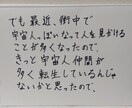 でも最近、街中で
宇宙人っぽいなって人を見かける
ことが多くなったので、
きっと宇宙人仲間が
多く転生しているんじゃ
ないかと思ったので、